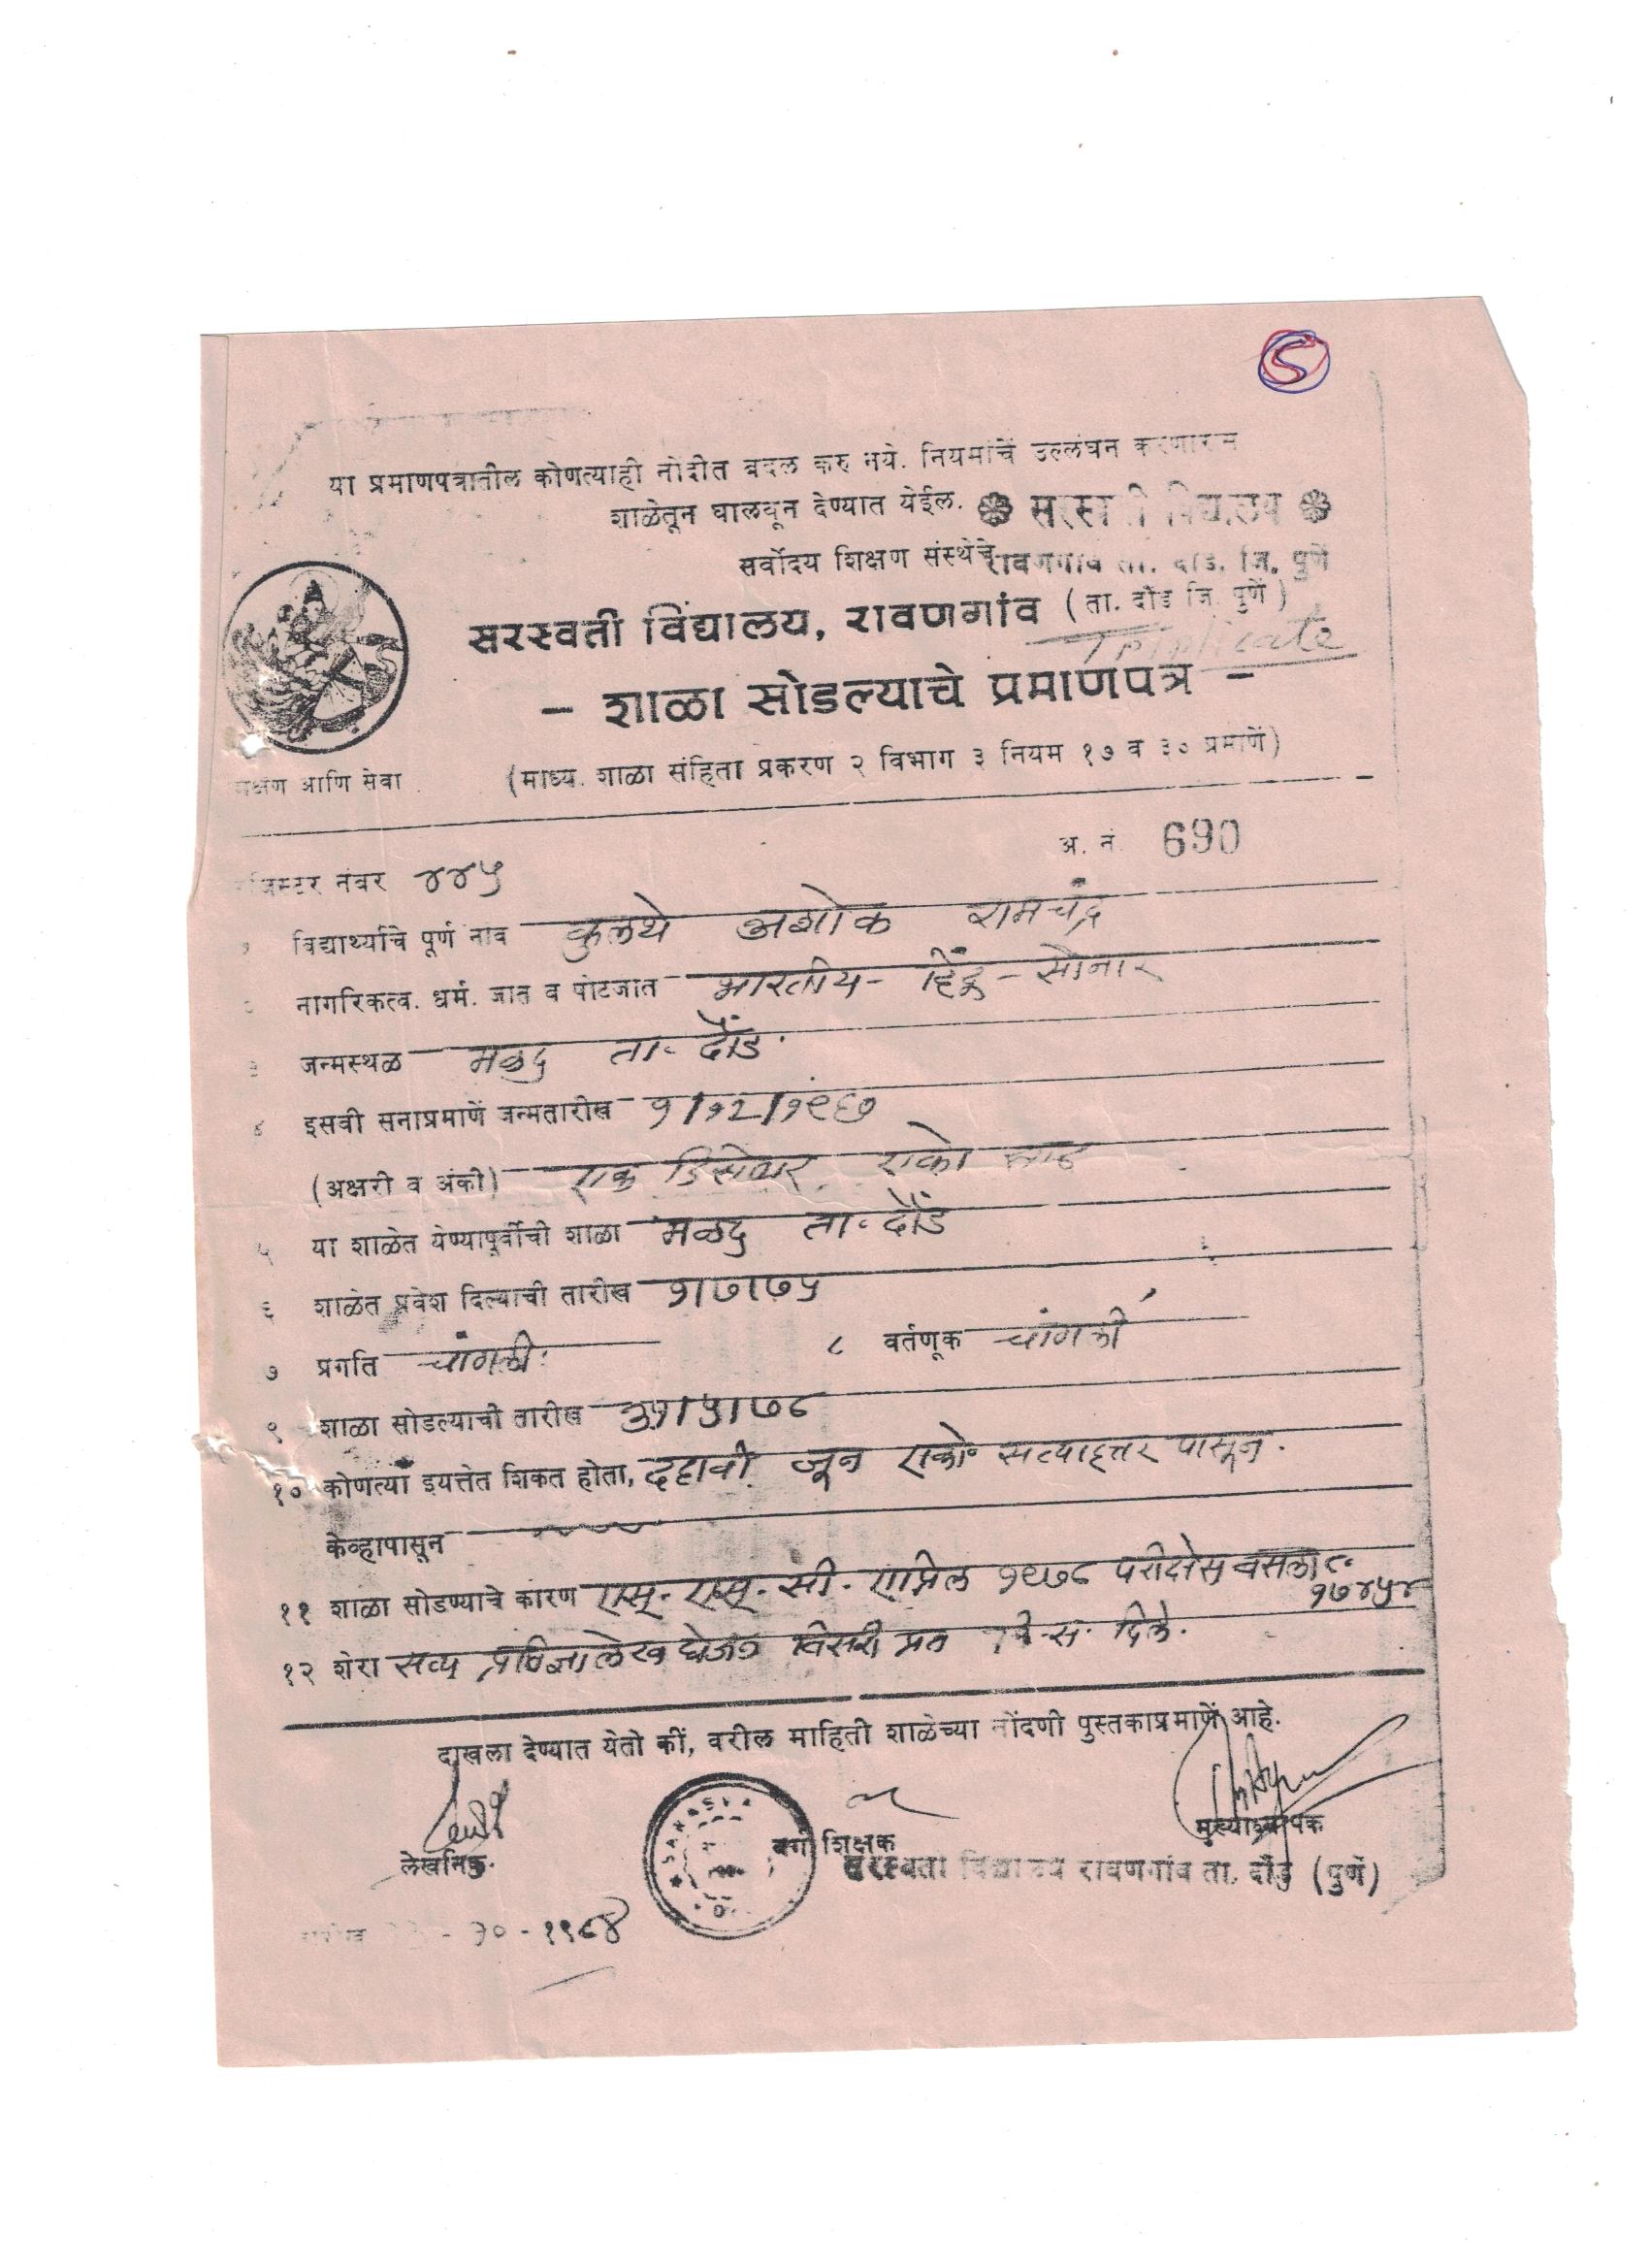 5
या प्रमाणपत्रातील कोणत्याही नोंदीत बदल करु नये. नियमांचें उल्लंघन करणारास
शाळेतून घालवून देण्यात येईल.
सरस्वती विद्यालय
सर्वोदय शिक्षण संस्थेचे
रावणगांव ता. दौंड. जि. पुणें
सरस्वती विद्यालय, रावणगांव (ता. दौंड जि. पुणें)
Triplicate
- शाळा सोडल्याचे प्रमाणपत्र -
(माध्य. शाळा संहिता प्रकरण २ विभाग ३ नियम १७ व ३० प्रमाणें)
आणि सेवा
अ. नं. 690
रजिस्टर नंबर ४४५
१ विद्यार्थ्याचे पूर्ण नांव कुलथे अशोक रामचंद्र
२ नागरिकत्व. धर्म. जात व पोटजात भारतीय - हिंदू - सोनार
३ जन्मस्थळ मळद ता. दौंड.
४ इसवी सनाप्रमाणें जन्मतारीख १/१२/१९६७
(अक्षरी व अंकी) एक डिसेंबर एको
५ या शाळेत येण्यापूर्वीची शाळा मळद ता. दौंड
६ शाळेत प्रवेश दिल्याची तारीख १/७/७५
७ प्रगति चांगली. ८ वर्तणूक चांगली
९ शाळा सोडल्याची तारीख ३१/५/७८
१० कोणत्या इयत्तेत शिकत होता, दहावी जून एको॰ सत्याहत्तर पासून.
केव्हापासून
११ शाळा सोडण्याचे कारण एस्. एस्. सी. एप्रिल १९७८ परीक्षेस बसला
१७४५४
१२ शेरा सत्य प्रतिज्ञालेख घेऊन तिसरी प्रत दिले.
दाखला देण्यात येतो कीं, वरील माहिती शाळेच्या नोंदणी पुस्तकाप्रमाणें आहे.
लेखनिक. वर्ग शिक्षक मुख्याध्यापक
सरस्वती विद्यालय रावणगांव ता. दौंड (पुणें)
तारीख - १० - १९८४